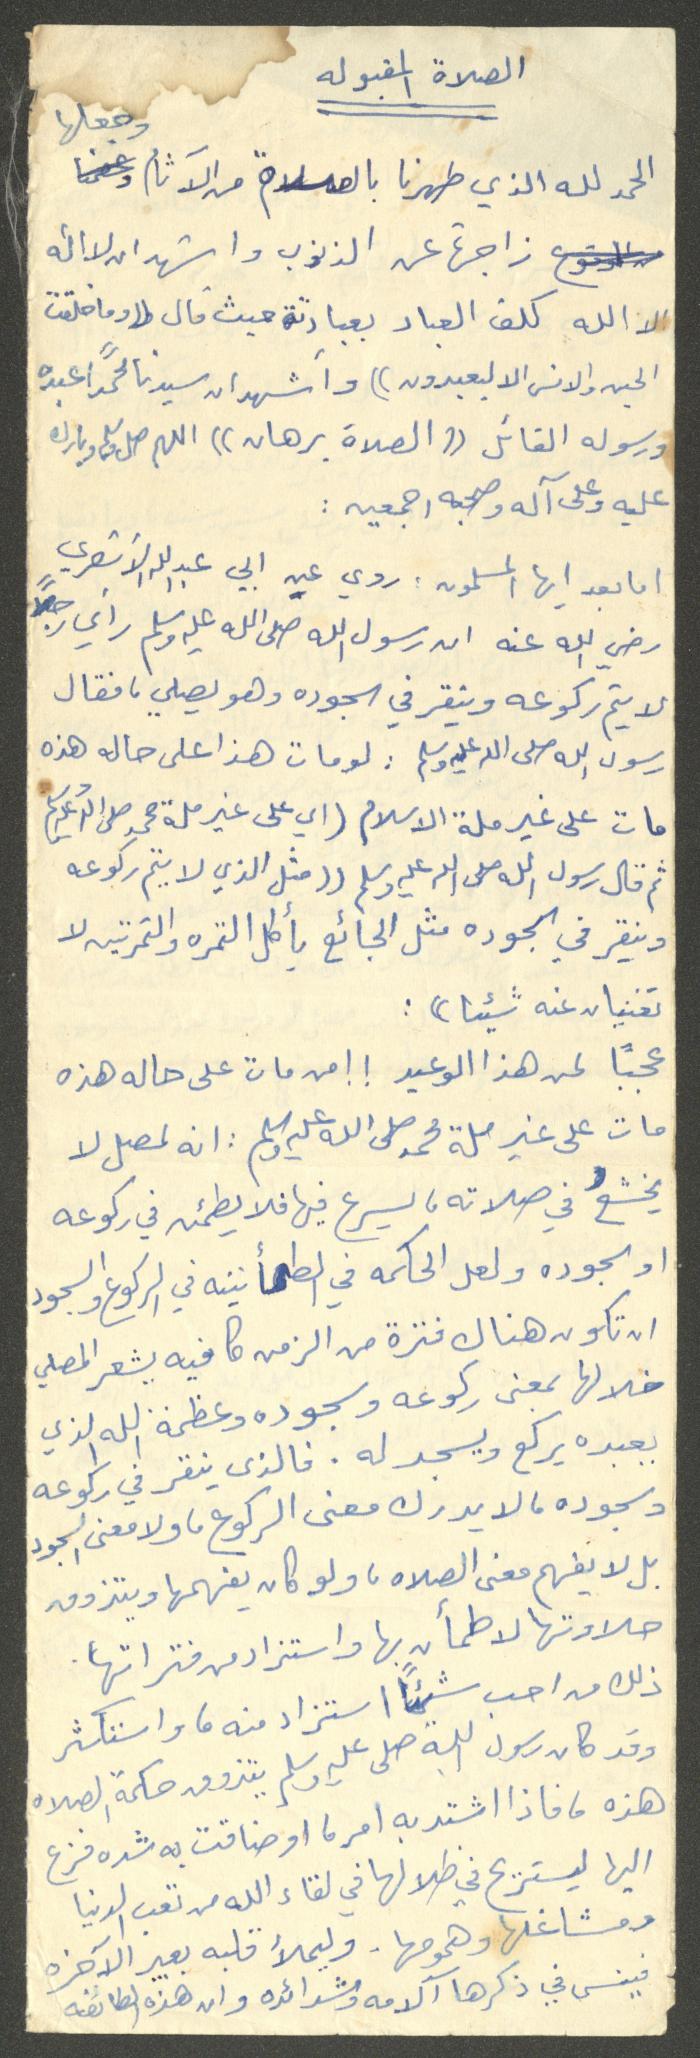 الصلاة المقبوله
وجعلها
الحمد لله الذي طهرنا بالصلاة من الآثام وعصمنا
من الوقوع زاجرة عن الذنوب واشهد ان لا اله
الا الله كلف العباد بعبادته حيث قال ((وما خلقت
الجن والانس الا ليعبدون)) وأشهد ان سيدنا محمداً عبده
ورسوله القائل ((الصلاة برهان)) اللهم صل وسلم وبارك
عليه وعلى آله وصحبه اجمعين :
اما بعد ايها المسلمون : روي عن ابي عبدالله الأشعري
رضي الله عنه ان رسول الله صلى الله عليه وسلم رأي رجلاً
لا يتم ركوعه وينقر في سجوده وهو يصلي ، فقال
رسول الله صلى الله عليه وسلم : لو مات هذا على حاله هذه
مات على غير ملة الاسلام (اي على غير ملة محمد صلى الله عليه وسلم
ثم قال رسول الله صلى الله عليه وسلم ((مثل الذي لا يتم ركوعه
وينقر في سجوده مثل الجائع يأكل التمره والتمرتين لا
تغنيان عنه شيئا)) :
عجبًا لمن هذا الوعيد !! من مات على حاله هذه
مات على غير ملة محمد صلى الله عليه وسلم : انه لمصل لا
يخشع في صلاته ، يسرع فيها فلا يطمئن في ركوعه
او سجوده ولعل الحكمه في الطمأنينه في الركوع والسجود
ان تكون هناك فترة من الزمن كافيه يشعر المصلي
خلالها بمعنى ركوعه وسجوده وعظمة الله الذي
يعبده يركع ويسجد له . فالذى ينقر في ركوعه
وسجوده ، لا يدرك معنى الركوع ، ولا معنى السجود
بل لا يفهم معنى الصلاه ، ولو كان يفهمها ويتذوق
حلاوتها لاطمأن بها واستزاد من فتراتها .
ذلك من احب شيئاً استزاد منه ، واستكثر
وقد كان رسول الله صلى عليه وسلم يتذوق حكمة الصلاه
هذه ، فاذا اشتد به امر ، او ضاقت به شده فزع
اليها ليستريح في ظلالها في لقاء الله من تعب الدنيا
ومشاغلها وهمومها . وليملأ قلبه بعبير الآخره
فينسى في ذكرها آلامه وشدائده وان هذه الطائفه